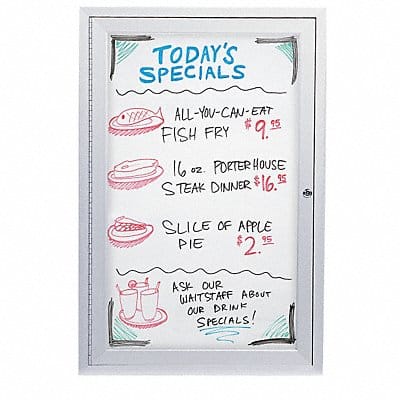 TODAY'S
SPECIALS
ALL-YOU-CAN-EAT
FISH FRY $9.95
16 oz. PORTERHOUSE
STEAK DINNER $16.95
SLICE OF APPLE
PIE $2.95
ASK OUR
WAITSTAFF ABOUT
OUR DRINK
SPECIALS!